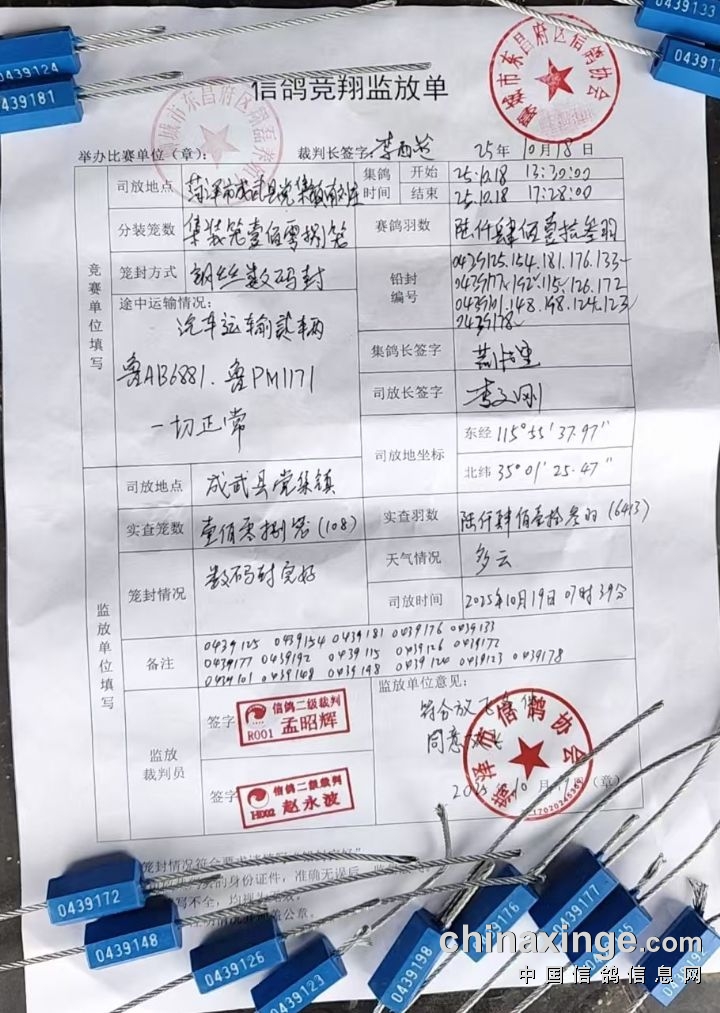 0439133
0439124
0439181
043917
聊城市东昌府区信鸽协会
信鸽竞翔监放单
举办比赛单位（章）： 裁判长签字 25年10月18日
竞赛单位填写
司放地点 菏泽市成武县党集镇
集鸽时间 开始 25.10.18 13:30:00
结束 25.10.18 17:28:00
分装笼数 集装笼壹佰零捌笼 赛鸽羽数 陆仟肆佰壹拾叁羽
笼封方式 钢丝数码封 铅封编号 0439125.154.181.176.133
0439177.192.115.126.172
0439101.148.198.124.123
0439178
途中运输情况：
汽车运输贰辆
鲁AB6881.鲁PM1171
一切正常
集鸽长签字
司放长签字 李文刚
司放地坐标 东经 115°55'37.97"
北纬 35°01'25.47"
监放单位填写
司放地点 成武县党集镇
实查笼数 壹佰零捌笼(108) 实查羽数 陆仟肆佰壹拾叁羽(6413)
笼封情况 数码封完好 天气情况 多云
司放时间 2025年10月19日07时39分
备注 0439125 0439154 0439181 0439176 0439133
0439177 0439192 0439115 0439126 0439172
0439101 0439148 0439198 0439124 0439123 0439178
监放裁判员
签字 信鸽二级裁判
R001 孟昭辉
签字 信鸽二级裁判
H002 赵永波
监放单位意见：
符合放飞条件
同意放飞
2025年10月19日（章）
菏泽市信鸽协会
0439172
0439148
0439126
0439123
0439198
0439176
0439177
0439192
chinaxinge.com
中国信鸽信息网